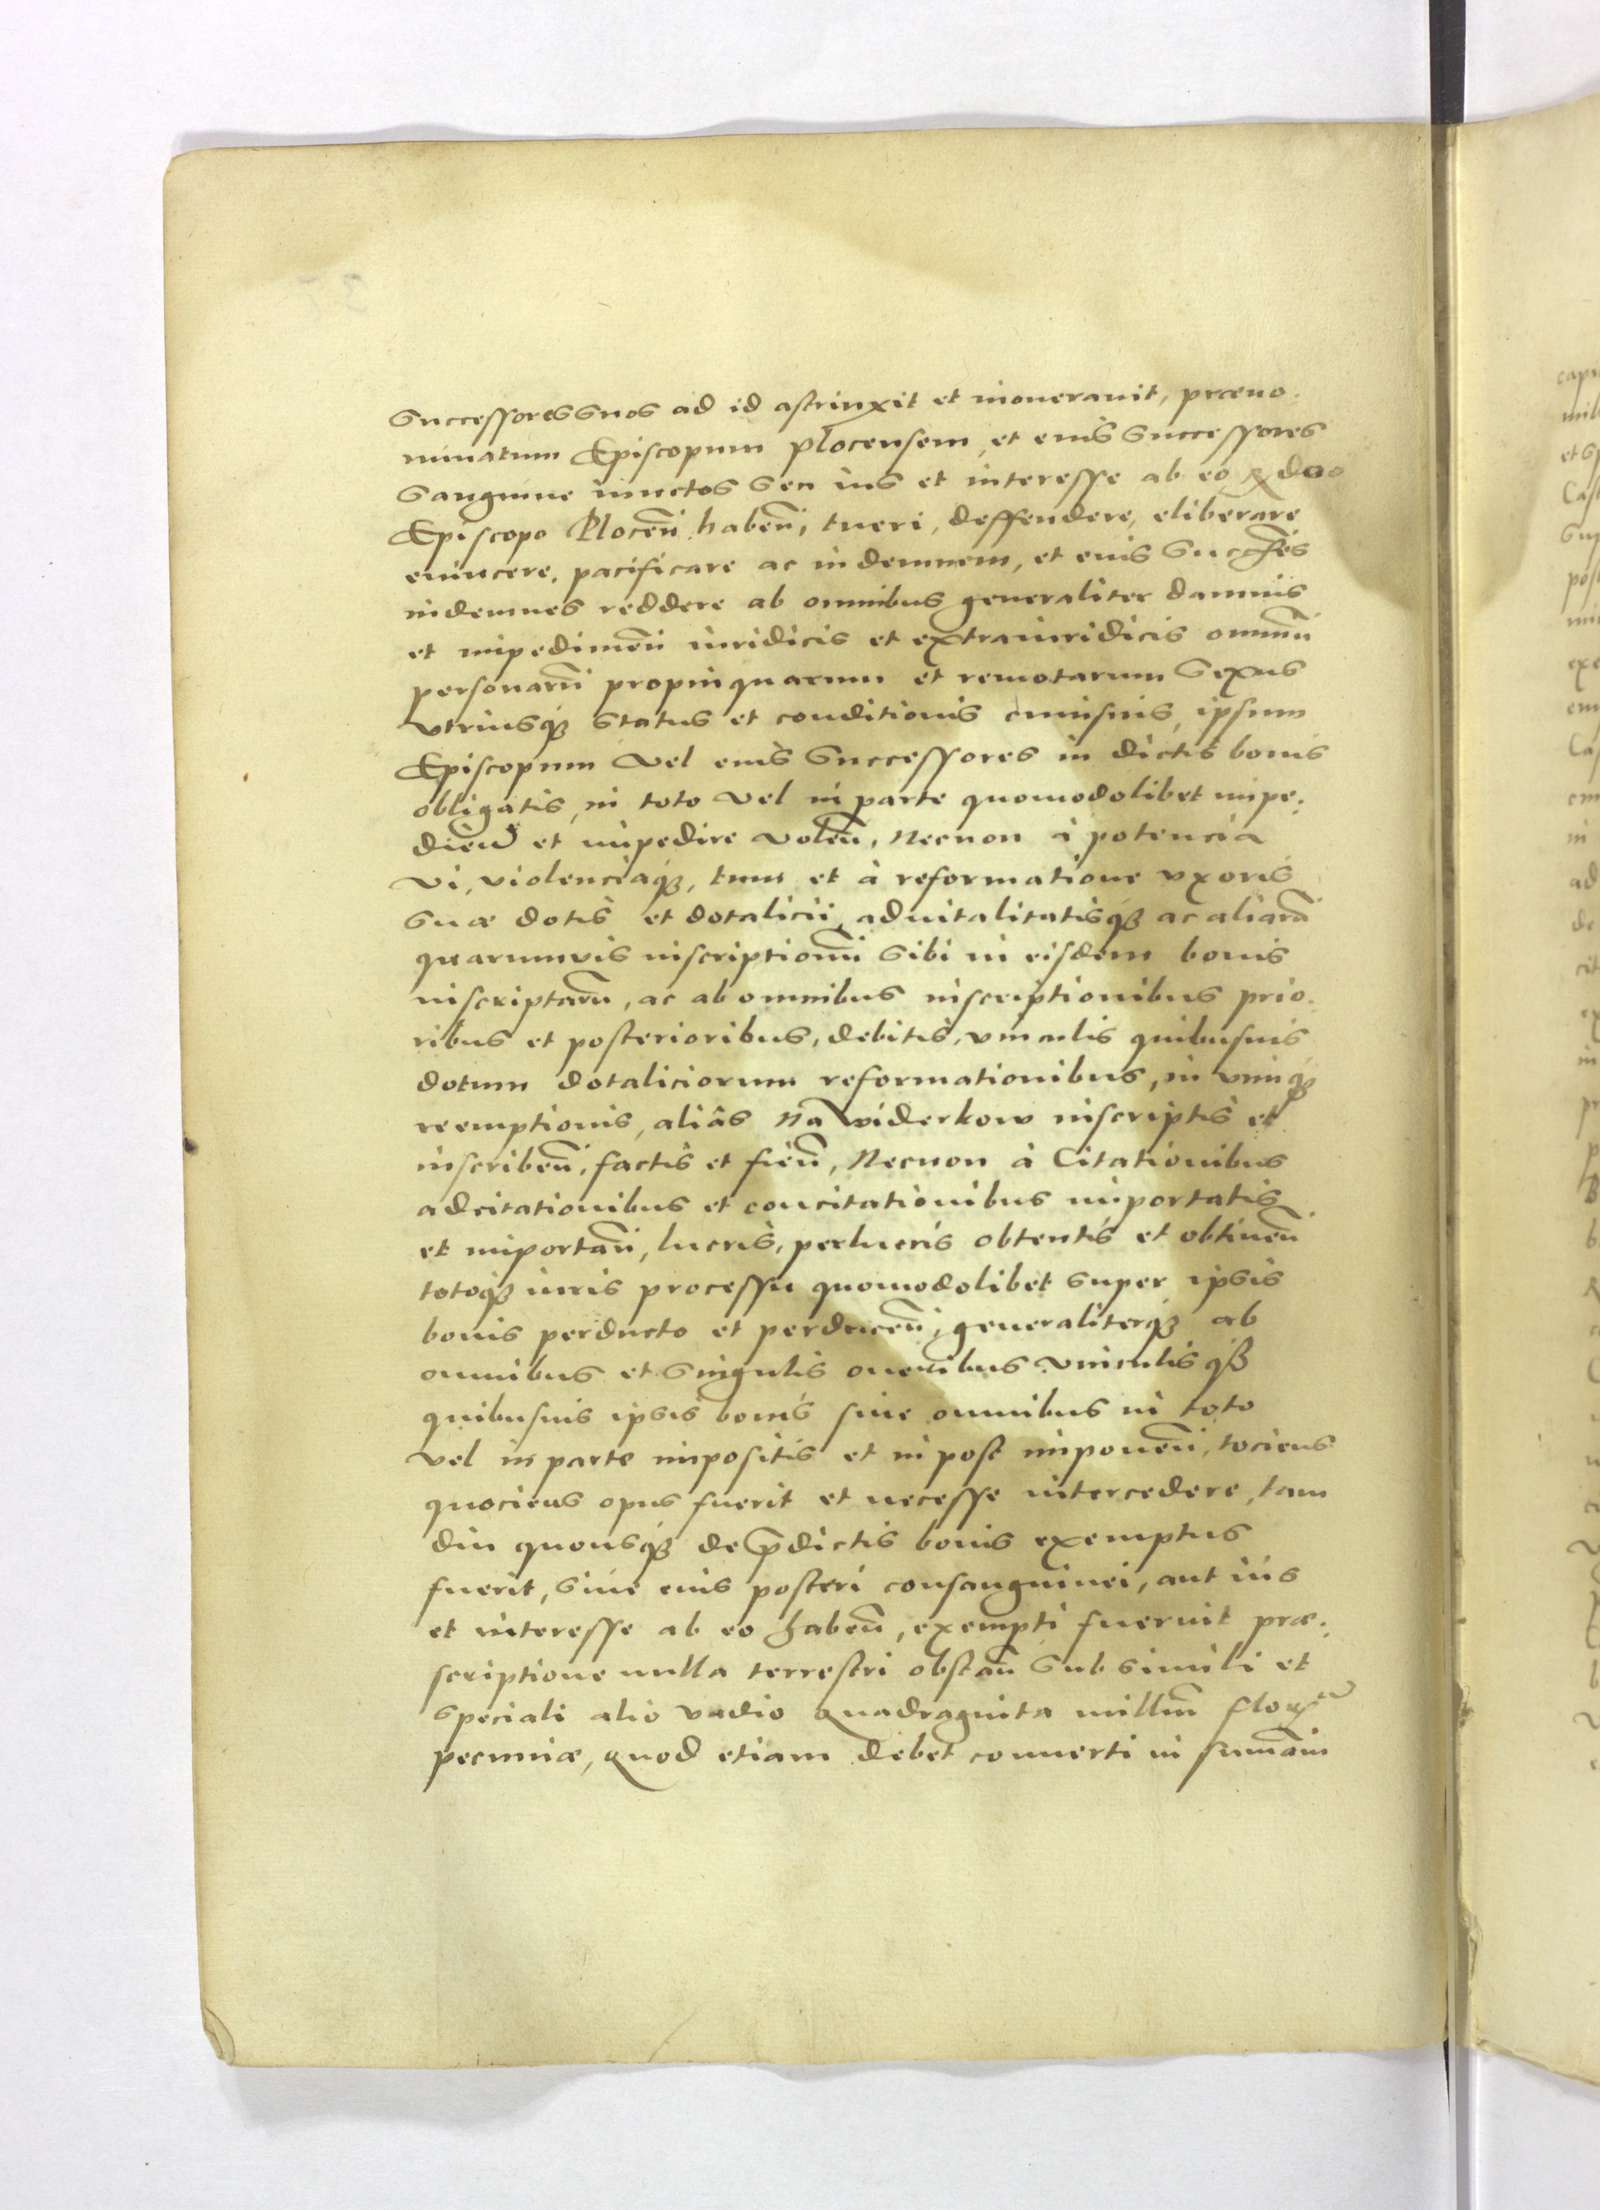 Successores suos ad id astrinxit et inoneravit, præno.
minatum Episcopum Plocensem, et eius Successores
Sanguine iunctos seu ius et interesse ab eo
Episcopo Plocen̄ haben̄, tueri, deffendere, eliberare
euincere, pacificare ac indemnem, et eius Succes̄
indemnes reddere ab omnibus generaliter damnis
et impedimen̄ iuridicis et extraiuridicis omniū
personarū propinquarum et remotarum Sexus
vtriusq3 Status et conditionis cuiusuis, ipsum
Episcopum vel eius Successores in dictis bonis
obligatis, in toto vel in parte quomodolibet impe.
dien̄ et impedire volen̄, Necnon à potencia
vi, violenciaq3, tum et à reformatione vxoris
suæ dotis et dotalicii, aduitalitatisq3 ac aliarū
quarumuis inscriptionū sibi in eisdem bonis
inscriptarū, ac ab omnibus inscriptionibus prio.
ribus et posterioribus, debitis, vinculis quibusuis
dotum dotaliciorum reformationibus, in vimq3
reemptionis, aliâs Na widerkow inscriptis et
inscriben̄, factis et fien̄, Necnon à Citationibus
adcitationibus et concitationibus importatis
et importan̄, lucris, perlucris obtentis et obtinen̄
totoq3 iuris processu quomodolibet super ipsis
bonis perducto et perducen̄, generaliterq3 ab
omnibus et singulis oneribus vinculisq3
quibusuis ipsis bonis siue omnibus in toto
vel in parte impositis et in post imponen̄, tociens
quociens opus fuerit et necesse intercedere, tam
diu quousq3 de p̄dictis bonis exemptus
fuerit, siue eius posteri consanguinei, aut ius
et interesse ab eo haben̄, exempti fuerint præ.
scriptione nulla terrestri obstan̄ Sub simili et
speciali alio vadio Quadraginta milliū flor
pecuniæ, quod etiam debet conuerti in sum̄am